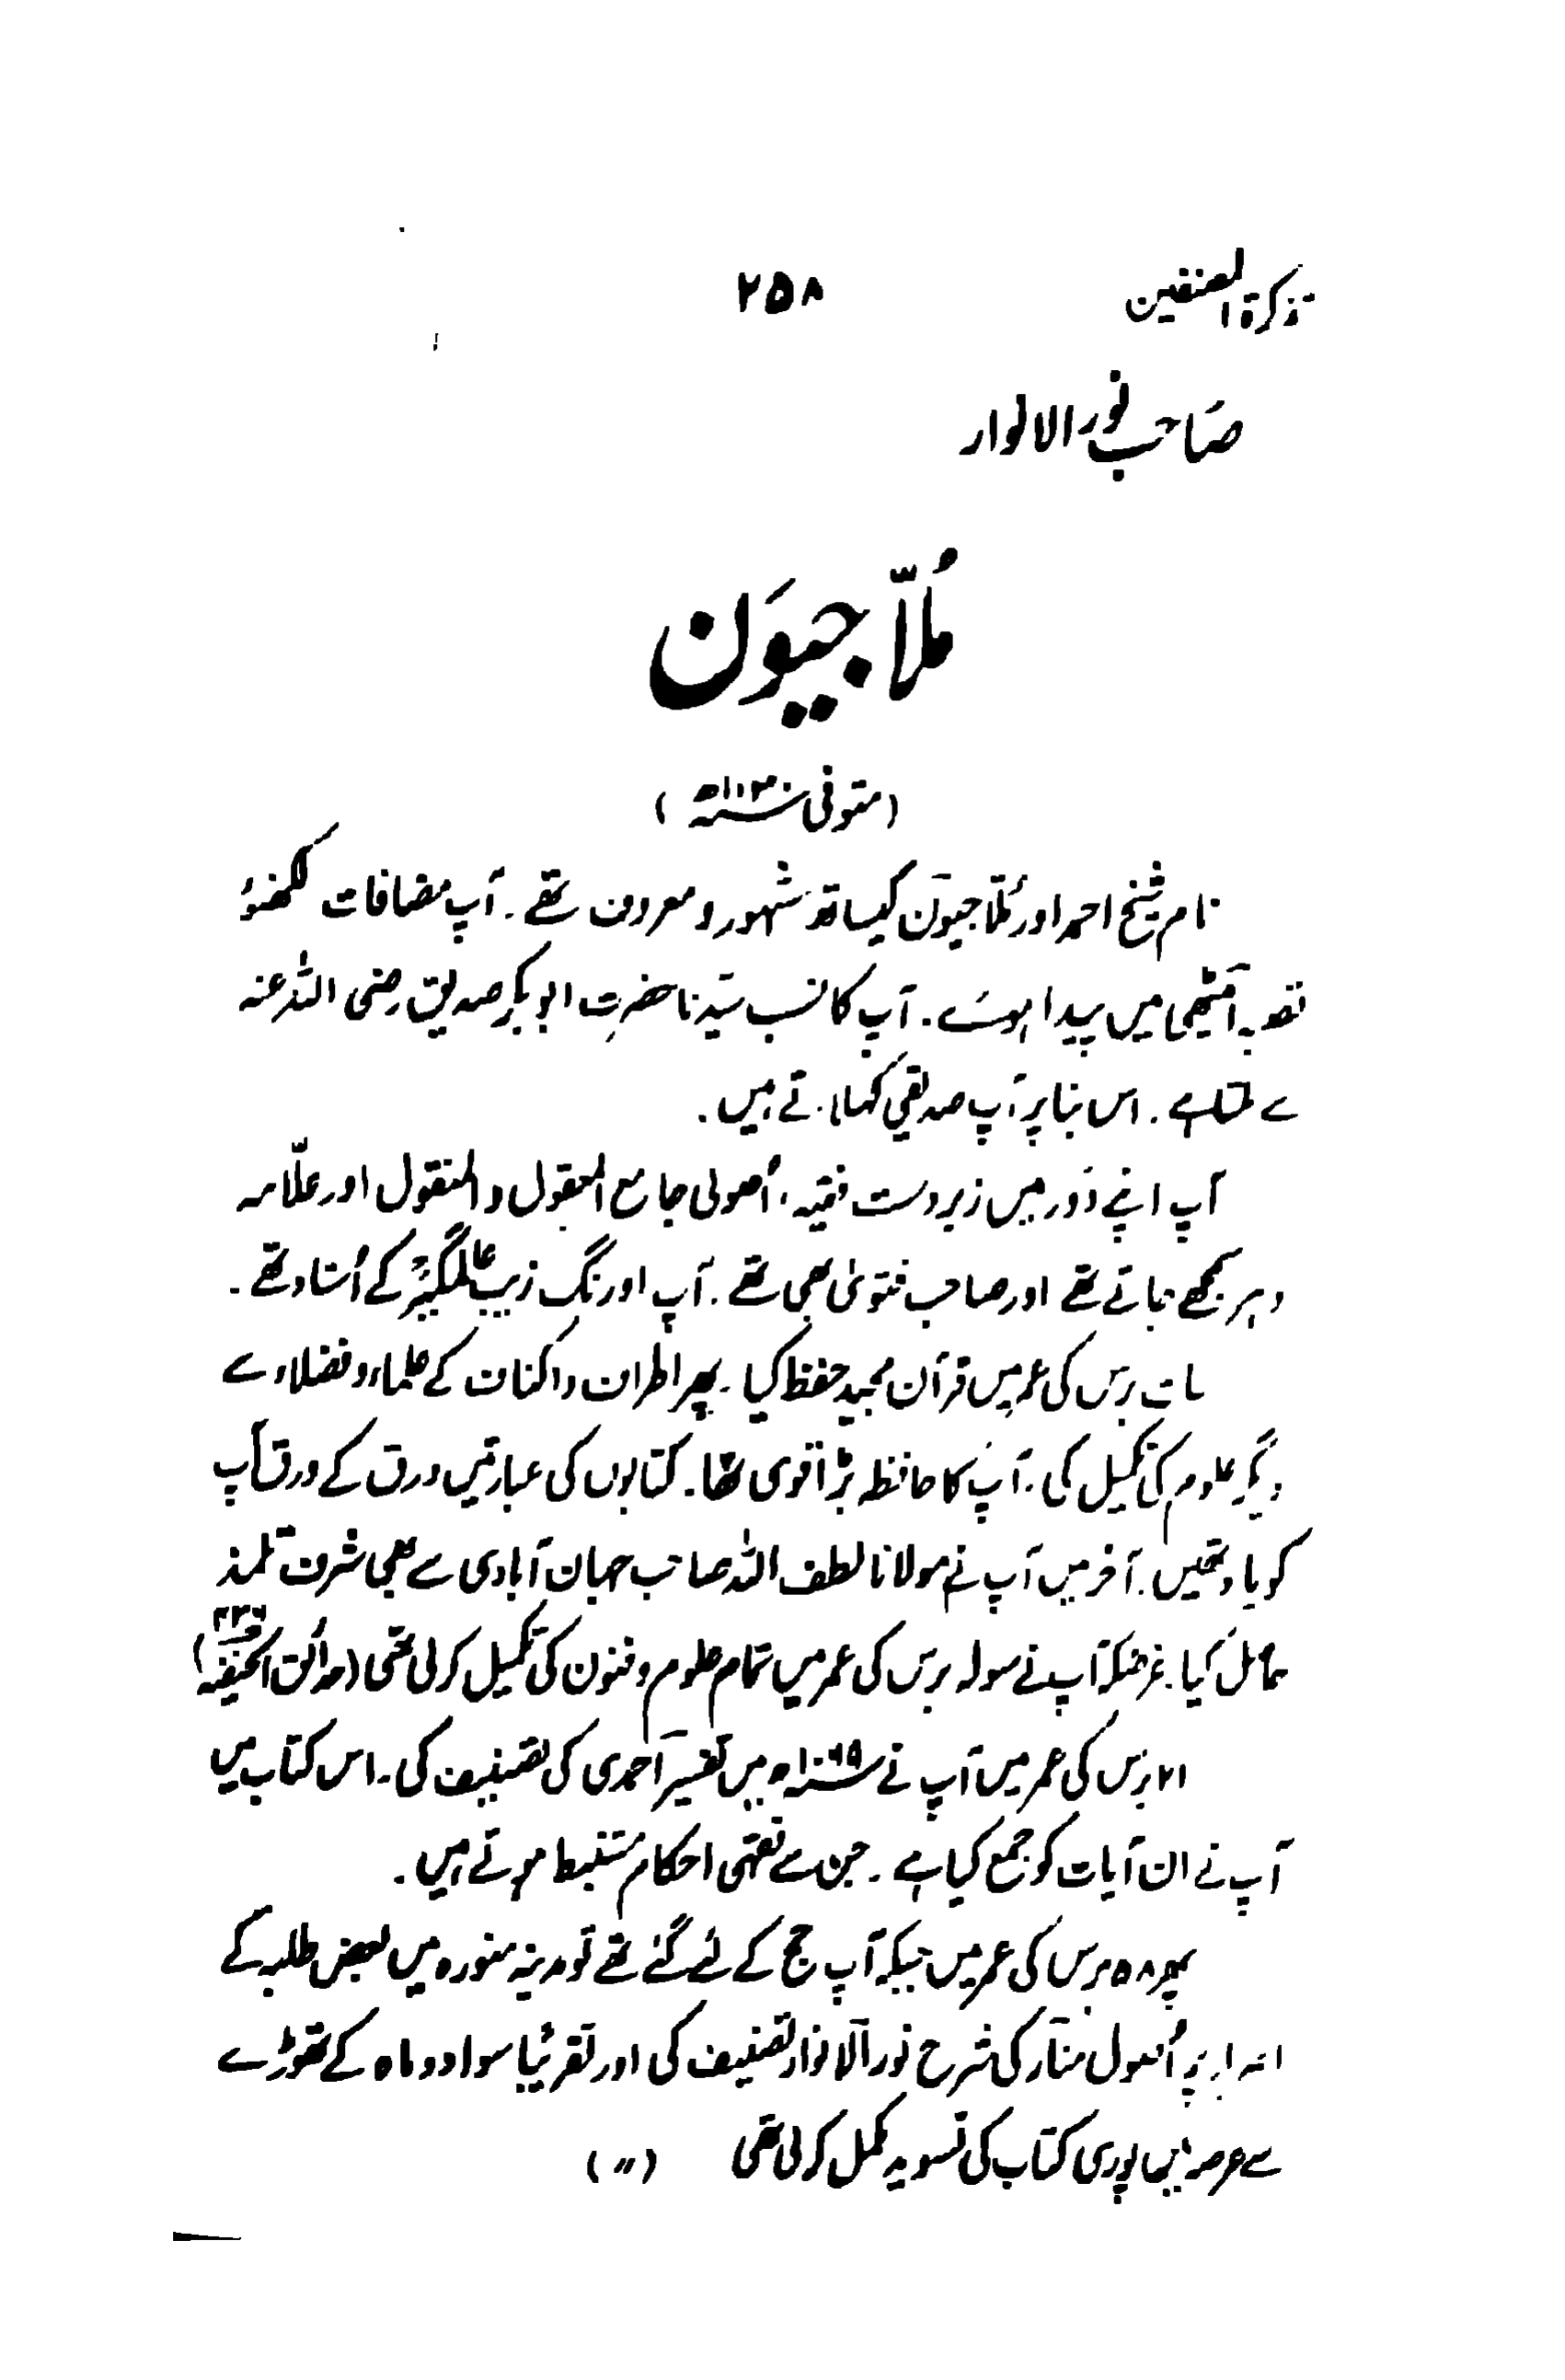 تذکرۃ المصنفین ۲۵۸
صاحب نور الانوار
مُلّا جیوَن
(متوفی ۱۱۳۰ھ)
نام شیخ احمد اور مُلّا جیوَن کیساتھ مشہور و معروف تھے۔ آپ مضافات لکھنؤ
قصبہ آمیٹھی میں پیدا ہوئے۔ آپ کا نسب سیّدنا حضرت ابوبکر صدیق رضی اللہ عنہ
سے ملتا ہے۔ اس بنا پر آپ صدیقی کہلاتے ہیں۔
آپ اپنے دَور میں زبردست فقیہ، اُصولی جامع المعقول والمنقول اور علّامہ
دہر سمجھے جاتے تھے اور صاحب فتویٰ بھی تھے۔ آپ اورنگ زیب عالمگیرؒ کے اُستاد تھے۔
سات برس کی عمر میں قرآن مجید حفظ کیا۔ پھر اطراف و اکناف کے علماء و فضلاء سے
دیگر علوم کی تکمیل کی۔ آپ کا حافظہ بڑا قوی تھا۔ کتابوں کی عبارتیں ورق کے ورق آپ
کو یاد تھیں۔ آخر میں آپ نے مولانا لطف اللہ صاحب جہان آبادی سے علمی شرف تلمذ
حاصل کیا۔ غرضیکہ آپ نے سولہ برس کی عمر میں تمام علوم و فنون کی تکمیل کرلی تھی (حدائق الحنیفہ)
۲۱ برس کی عمر میں آپ نے ۱۰۶۹ھ میں تفسیر احمدی کی تصنیف کی۔ اس کتاب میں
آپ نے ان آیات کو جمع کیا ہے۔ جن سے فقہی احکام مُستنبط ہوتے ہیں۔
پھر ۵۸ برس کی عمر میں جبکہ آپ حج کے لئے گئے تھے تو مدینہ منورہ میں بعض طلبہ کے
اصرار پر اُصول منآر کی شرح نورالانوار تصنیف کی اور تقریبًا سوا دو ماہ کے تھوڑے
سے عرصہ میں پوری کتاب کی تسوید مکمل کرلی تھی (〃)